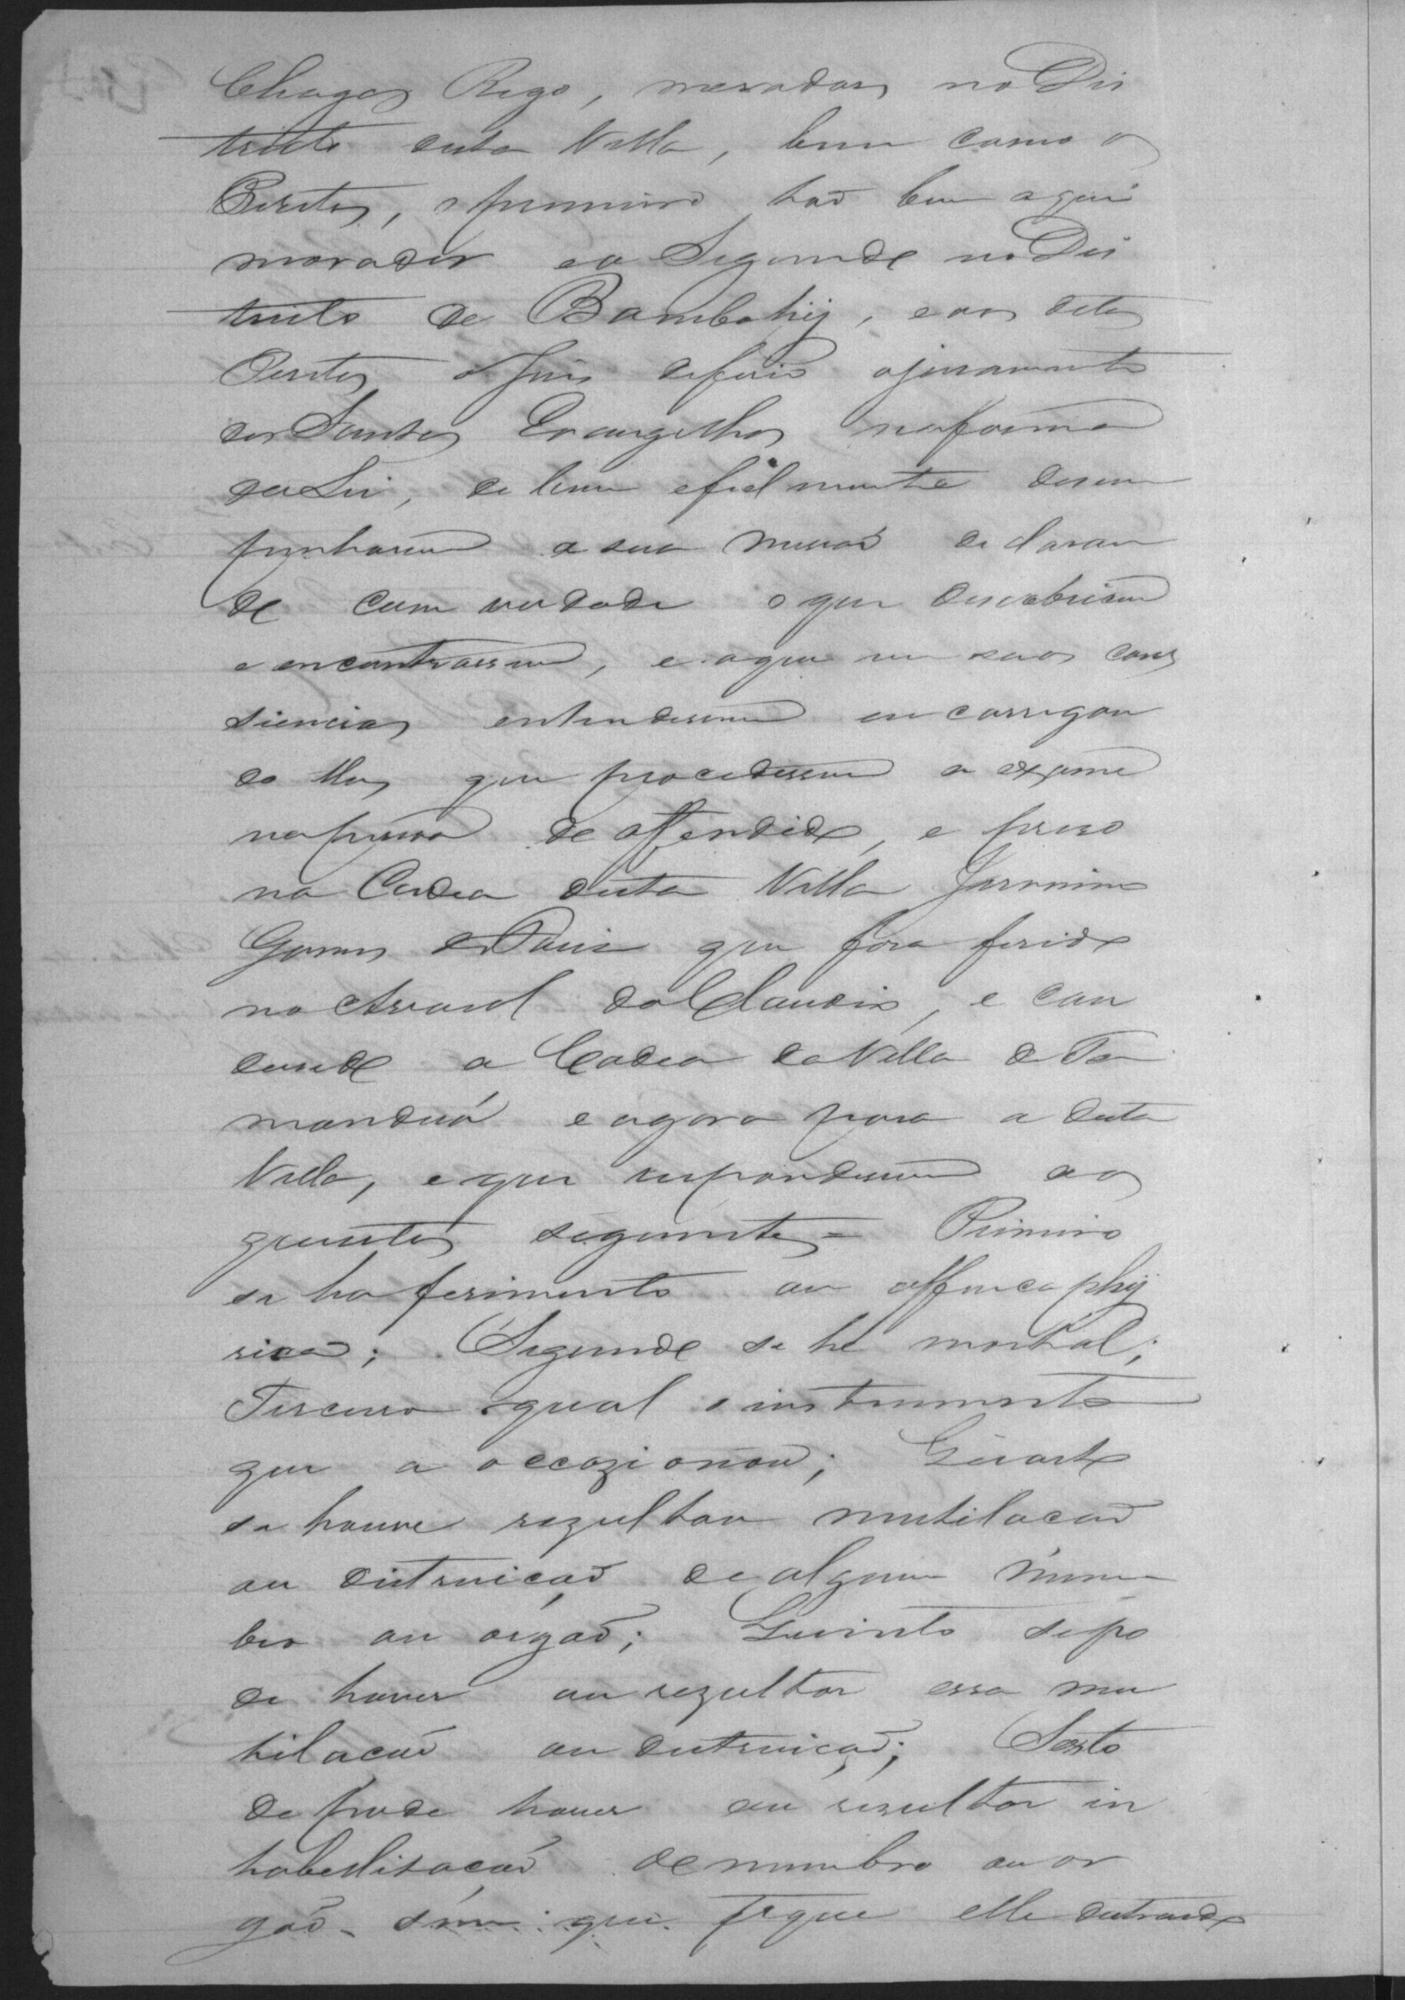 Chagas Rego, moradores no Dis
tricto desta Villa, bem como os
Peritos, o primeiro taõ bem aqui
morador e o Segundo no Dis
tricto de Bambohij, e aos ditos
Peritos o Juis deferio o juramento
dos Santos Evangelhos na forma
da Lei, de bem e fielmente desem
penharem a sua missaõ declaran
do com verdade o que descobrirem
e encontrassem, e o que em suas cons
siencias entenderem encarregan
do lhes que procedessem a exame
na pessoa do offendido, e prezo
na Cadea desta Villa Jeronimo
Gomes de Paiva que fora ferido
no Arraial do Claudio, e con
dusido a Cadea da Villa de Ta
manduá e agora para a desta
Villa, e que respondessem aos
quesitos seguintes = Primeiro
se ha ferimento ou offença phy
sica; Segundo se he mortal;
Terceiro qual o instrumento
que a occazionou; Quarto
se houve rezultou mutilacaõ
ou distruiçaõ de algum mem
bro ou orgaõ; Quinto se po
de haver ou rezultar essa mu
tilacaõ ou distruiçaõ; Sexto
se pode haver ou rezultar in
habelitaçaõ de membro ou or
gaõ sem que fique elle distruido